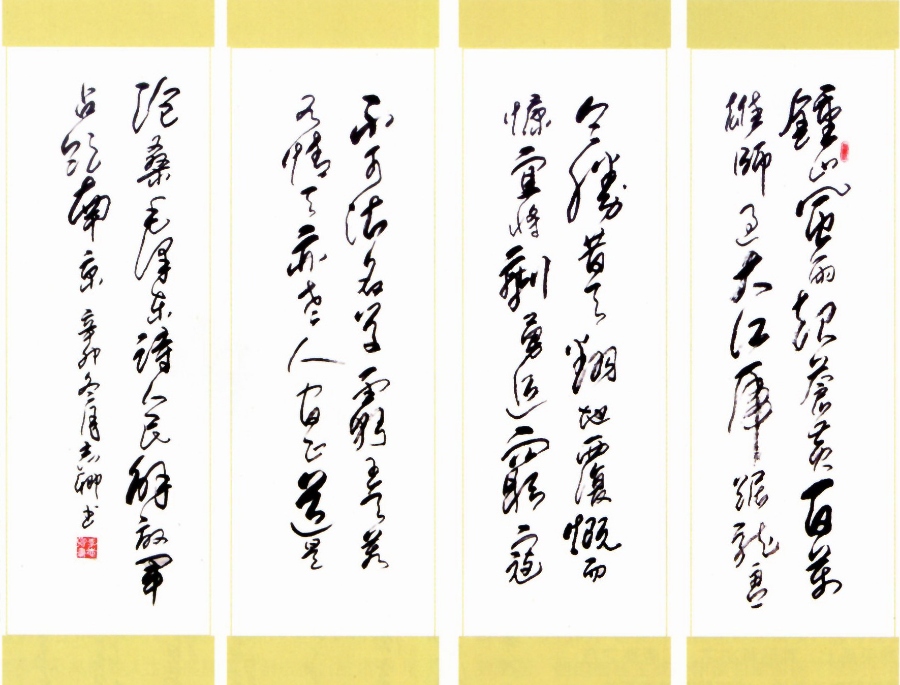 鍾山風雨起蒼黄百萬
雄師过大江虎踞龍盘
今勝昔天翻地覆慨而
慷宜将剩勇追窮寇
不可沽名学霸王天若
有情天亦老人间正道是
沧桑毛泽东詩人民解放军
占领南京 辛卯冬月志卿书